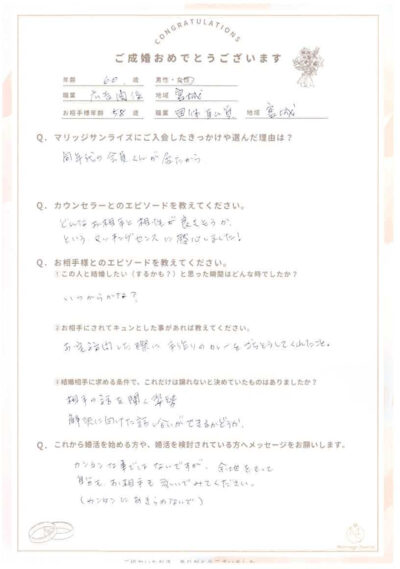 CONGRATULATIONS
ご成婚おめでとうございます
年齢 60 歳 男性・女性
職業 広告関係 地域 宮城
お相手様年齢 58 歳 職業 団体職員 地域 宮城
Q. マリッジサンライズにご入会したきっかけや選んだ理由は？
同年代の会員さんが居たから
Q. カウンセラーとのエピソードを教えてください。
どんなお相手と相性が良さそうか、
という マッチングセンスに感心しました!
Q. お相手様とのエピソードを教えてください。
①この人と結婚したい（するかも？）と思った瞬間はどんな時でしたか？
いつからかな？
②お相手にされてキュンとした事があれば教えてください。
お宅訪問した際に 手作りのカレーをごちそうしてくれたこと。
③結婚相手に求める条件で、これだけは譲れないと決めていたものはありましたか？
相手の話を聞く姿勢
解決に向けた話し合いができるかどうか.
Q. これから婚活を始める方や、婚活を検討されている方へメッセージをお願いします。
カンタンな事ではないですが、余裕をもって
自分も お相手も 見てください。
(カンタンに あきらめないで)
ご協力いただき、ありがとうございました